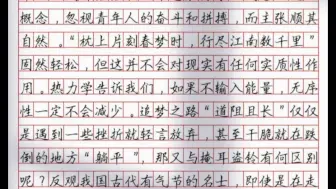 概念，忽视青年人的奋斗和拼搏，而主张顺其
自然。“枕上片刻春梦时，行尽江南数千里”
固然轻松，但这并不会对现实有任何实质性作
用。热力学告诉我们，如果不输入能量，无序
性一定不会减少。追梦之路“道阻且长”仅仅
是遇到一些挫折就轻言放弃，甚至干脆就在跌
倒的地方“躺平”，那又与掩耳盗铃有何区别
呢？反观我国古代有气节的名士，即使是在走